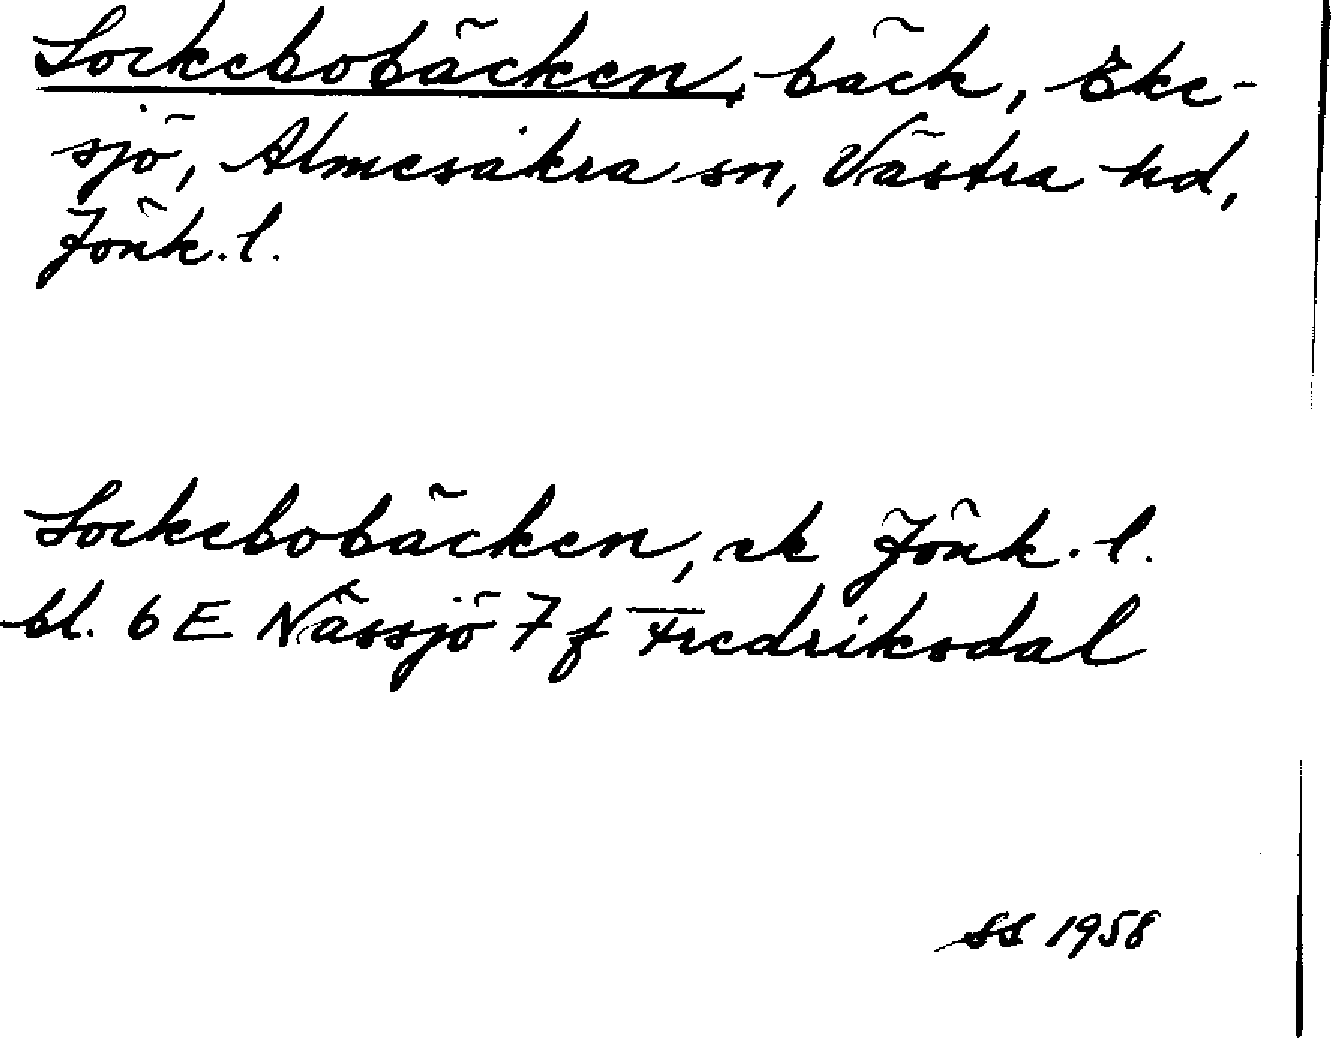 Sockebobäcken, bäck, Eke-
sjö, Almesåkra sn, Västra hd,
Jönk. l.
Sockebobäcken, ek Jönk. l.
bl. 6 E Nässjö 7 f Fredriksdal
SS 1958